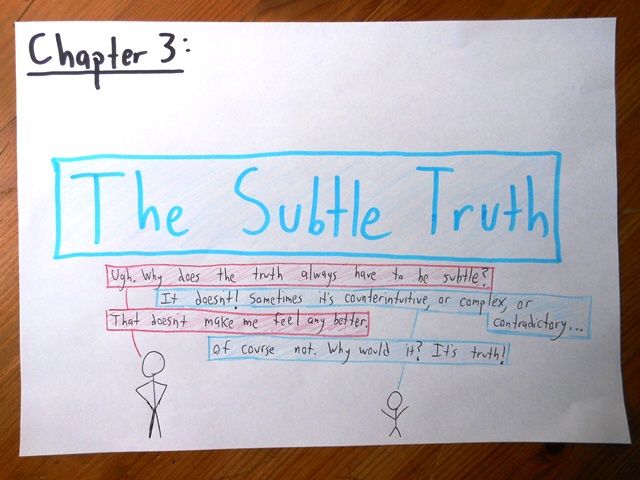 Chapter 3:
The Subtle Truth
Ugh. Why does the truth always have to be subtle?
It doesnt! Sometimes it's counterintuitive, or complex, or
contradictory...
That doesnt make me feel any better.
Of course not. Why would it? It's truth!